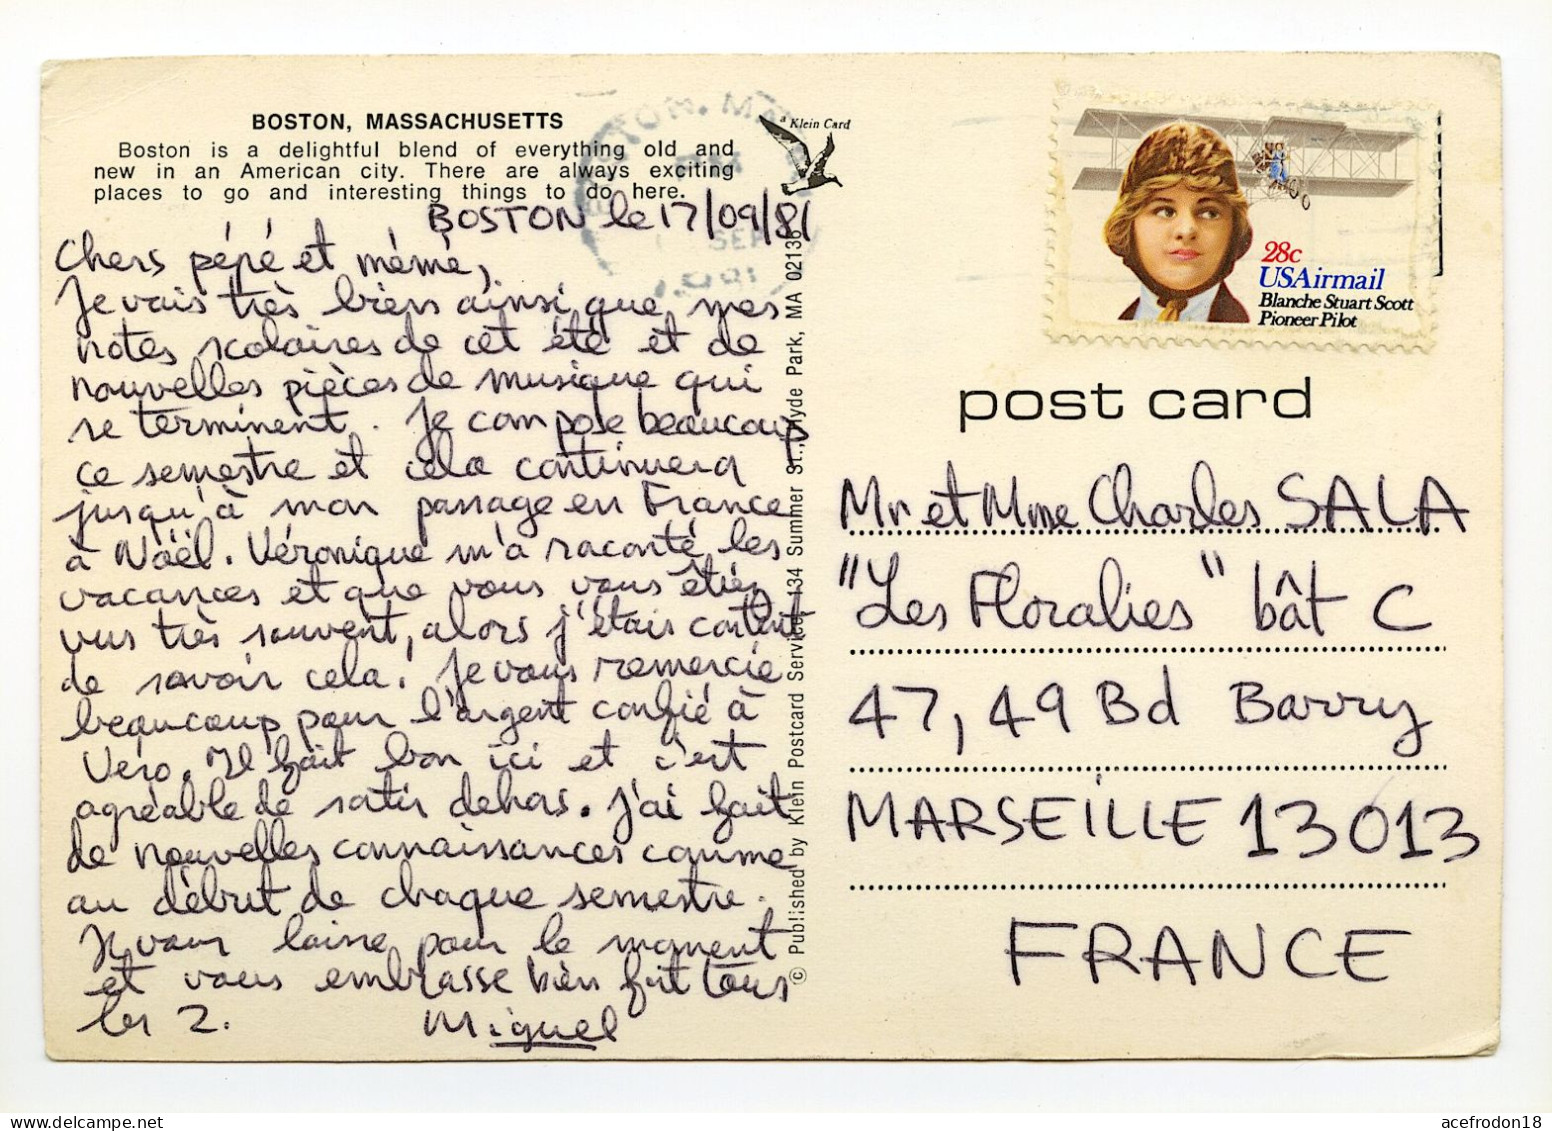 BOSTON, MASSACHUSETTS
Boston is a delightful blend of everything old and
new in an American city. There are always exciting
places to go and interesting things to do here.
a Klein Card
BOSTON le 17/09/81
Chers pépé et mémé,
Je vais très bien ainsi que mes
notes scolaires de cet été et de
nouvelles pièces de musique qui
se terminent. Je compose beaucoup
ce semestre et cela continuera
jusqu'à mon passage en France
à Nöël. Véronique m'a raconté les
vacances et que vous vous étiez
vus très souvent, alors j'étais content
de savoir cela! Je vous remercie
beaucoup pour l'argent confié à
Véro. Il fait bon ici et c'est
agréable de sortir dehors. J'ai fait
de nouvelles connaissances comme
au début de chaque semestre.
Je vous laisse pour le moment
et vous embrasse bien fort tous
les 2. Miguel
© Published by Klein Postcard Service, 134 Summer St., Hyde Park, MA 02136
28c
USAirmail
Blanche Stuart Scott
Pioneer Pilot
post card
Mr et Mme Charles SALA
"Les Floralies" bât C
47, 49 Bd Barry
MARSEILLE 13013
FRANCE
acefrodon18